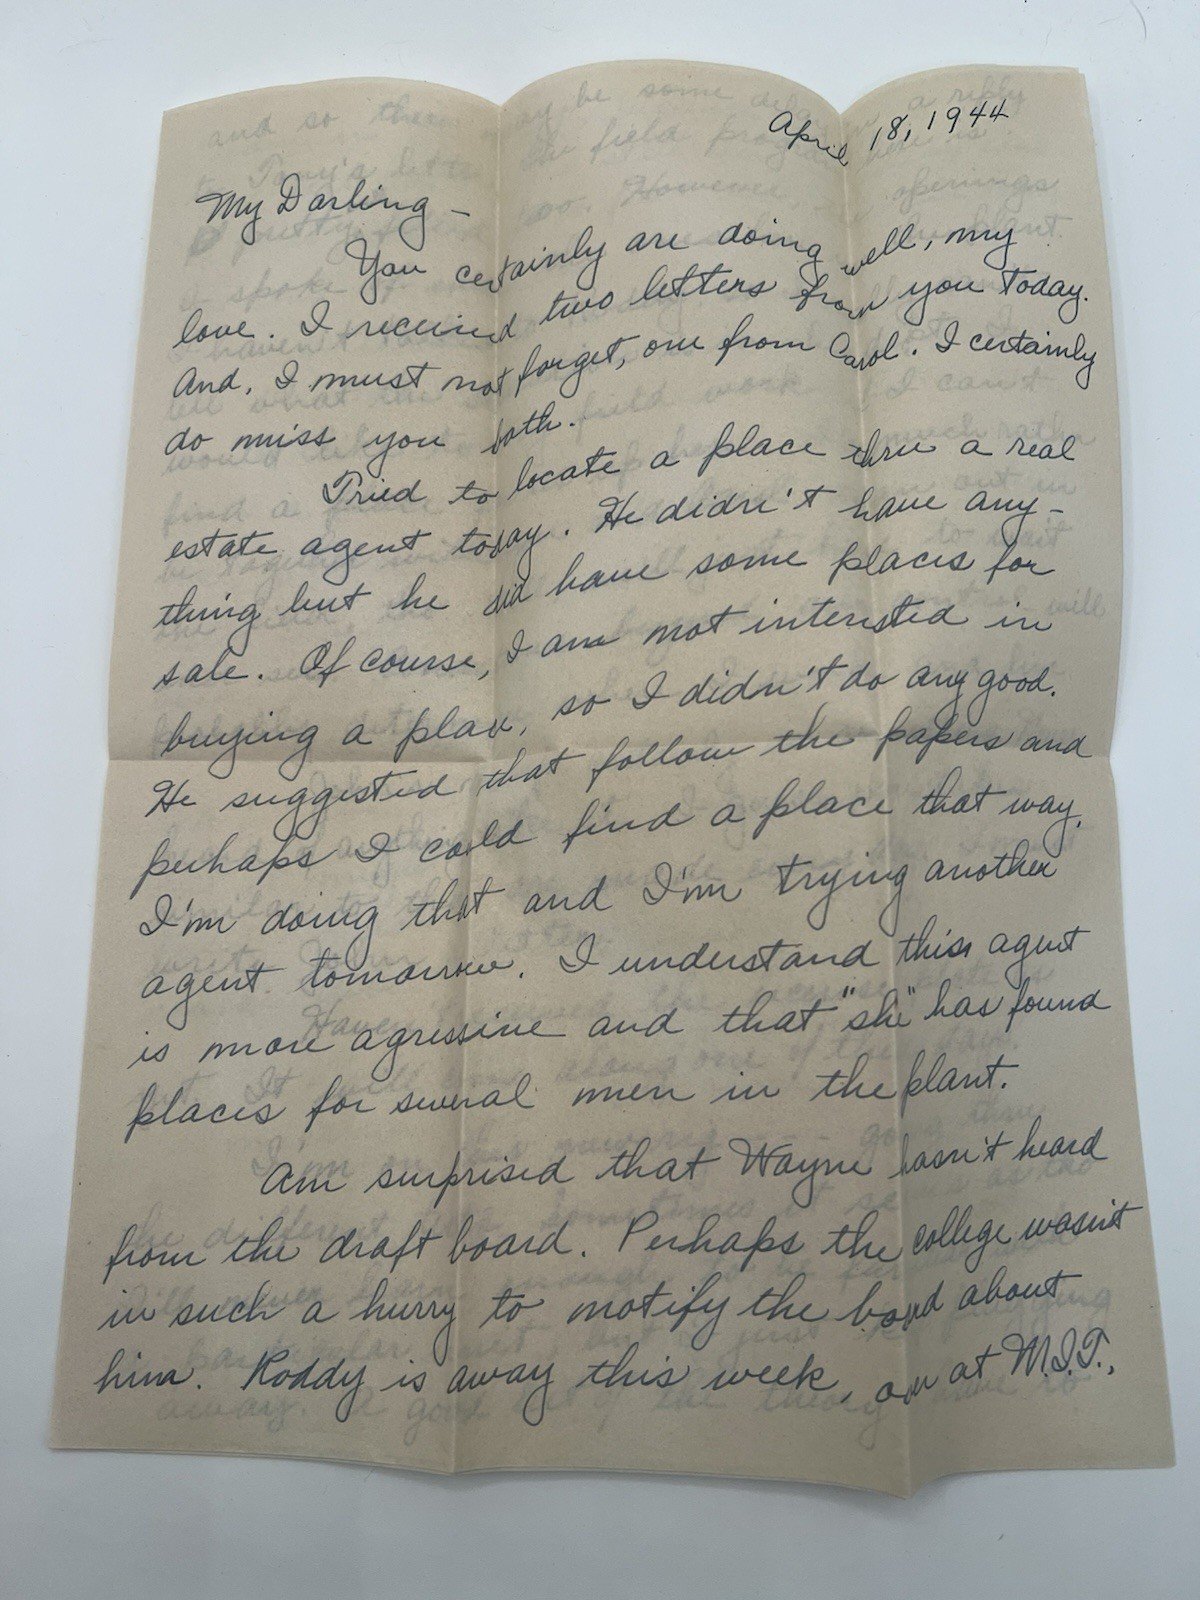 April 18, 1944
My Darling -
You certainly are doing well, my
love. I received two letters from you today.
And, I must not forget, one from Carol. I certainly
do miss you both.
Tried to locate a place thru a real
estate agent today. He didn't have any-
thing but he did have some places for
sale. Of course, I am not interested in
buying a place, so I didn't do any good.
He suggested that follow the papers and
perhaps I could find a place that way.
I'm doing that and I'm trying another
agent tomorrow. I understand this agent
is more agressive and that "she" has found
places for several men in the plant.
Am surprised that Wayne hasn't heard
from the draft board. Perhaps the college wasn't
in such a hurry to notify the board about
him. Roddy is away this week, over at M.I.T.,